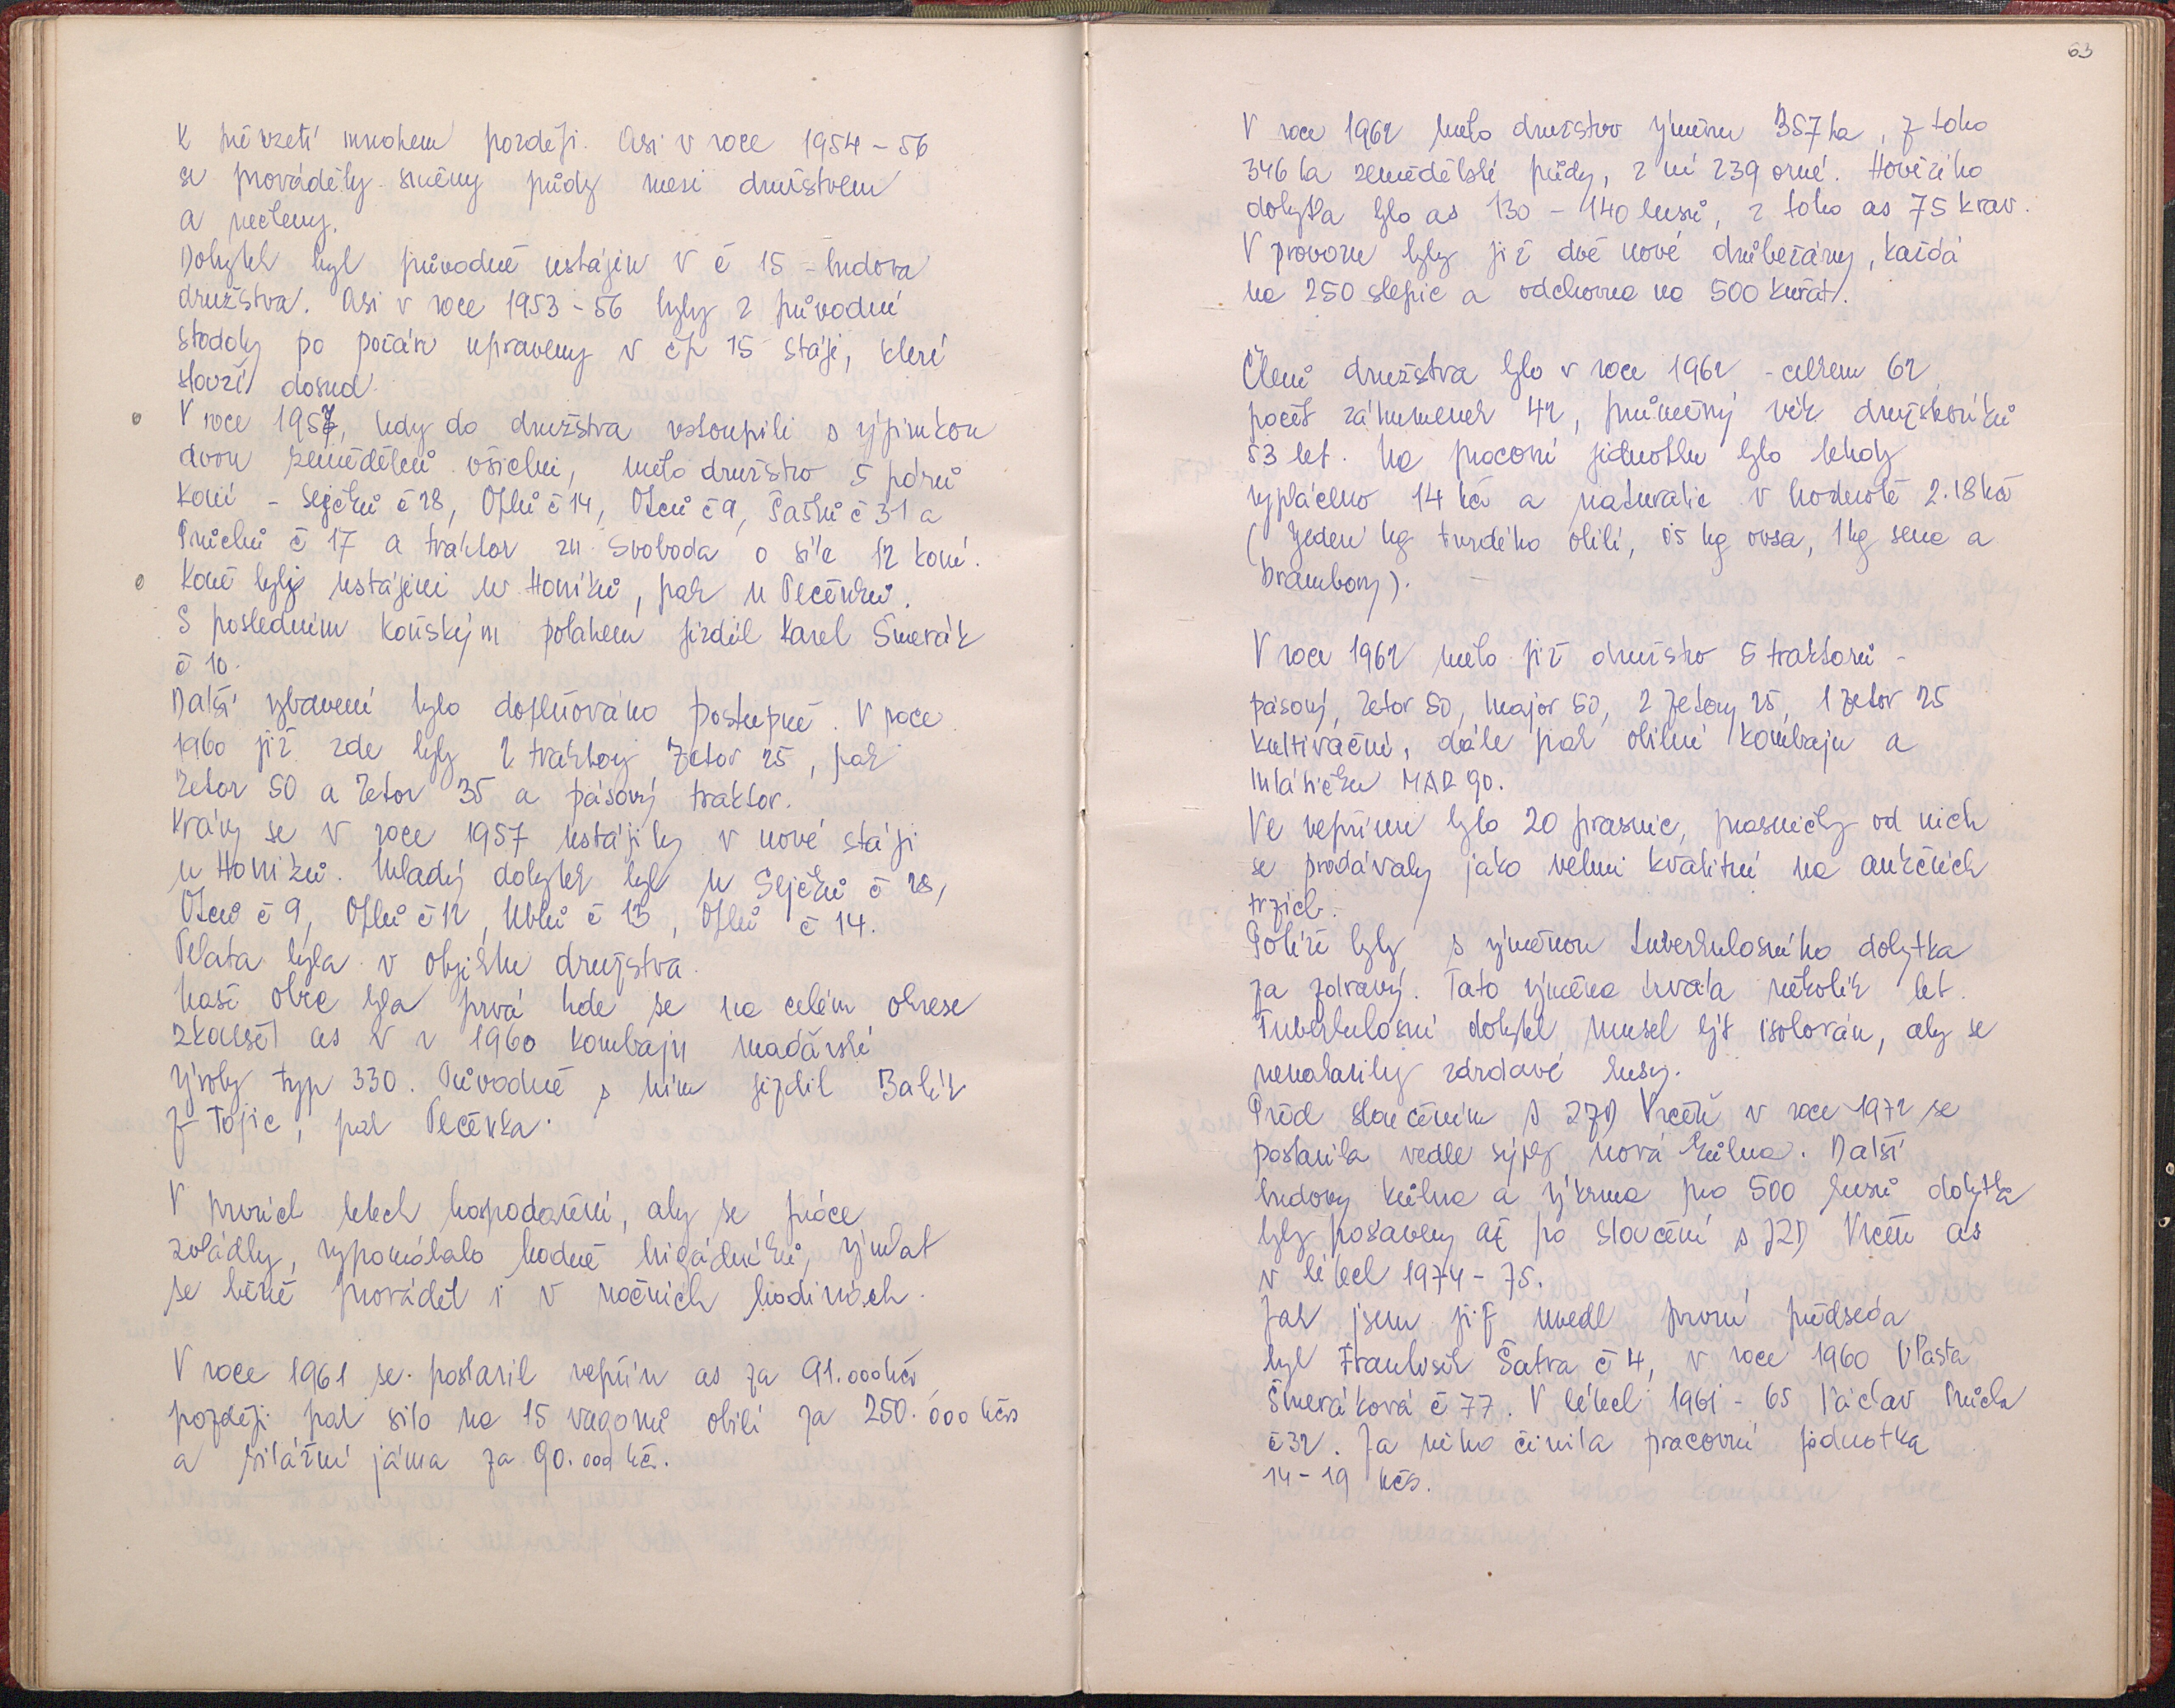 K převzetí mnohem později. Asi v roce 1954 - 56
se prováděly směny půdy mezi družstvem
a nečleny.
Dobytek byl původně ustájen v č 15 - budova
družstva. Asi v roce 1953 - 56 byly z původní
stodoly po požáru upraveny v čp 15 stáje, které
slouží dosud.
V roce 1957, kdy do družstva vstoupili s výjimkou
dvou zemědělců všichni, mělo družstvo 5 párů
koní - Sejčků č 28, Oflů č 14, č 9, Šašků č 31 a
Průchů č 17 a traktor zn. Svoboda o síle 12 koní.
Koně byly ustájeni u Honíků, pak u Pecénků.
S posledním koňským potahem jizdil Karel Šmerák
č 10.
Další vybavení bylo doplňováno postupně. V roce
1960 již zde byly 2 traktory Zetor 25, pak
Zetor 50 a Zetor 35 a pásový traktor.
Krávy se v roce 1957 ustájily v nové stáji
u Honíků. Mladý dobytek byl u Sejčků č 28,
č 9, Oflů č 12, č 13, Oflů č 14.
Telata byla v objektu družstva.
Naše obec byla prvá kde se na celém okrese
zkoušel as v r 1960 kombajn maďarské
výroby typ 330. Původně s ním jizdil Balík
z Tojic, pak Pecénka.
V prvních letech hospodaření, aby se práce
zvládly, vypomáhalo hodně brigádníků, výmlat
se běžně prováděl i v nočních hodinách.
V roce 1961 se postavil vepřín as za 91.000 kčs
později pak silo na 15 vagonů obilí za 250.000 kčs
a silážní jáma za 90.000 kčs.
63
V roce 1962 mělo družstvo výměru 357 ha, z toho
346 ha zemědělské půdy, z ní 239 orné. Hovězího
dobytka bylo as 130 - 140 kusů, z toho as 75 krav.
V provozu byly již dvě nové drůbežárny, každá
na 250 slepic a odchovna na 500 kuřat.
Členů družstva bylo v roce 1962 - celkem 62
počet záhumenek 42, průměrný věk družstevníků
53 let. Na pracovní jednotku bylo tehdy
vypláceno 14 kčs a naturalie v hodnotě 2.18 kčs
(Jeden kg tvrdého obilí, 05 kg ovsa, 1 kg sena a
brambory).
V roce 1962 mělo již družstvo 5 traktorů -
pásový, Zetor 50, Major 50, 2 Zetory 25, 1 Zetor 25
kultivační, dále pak obilní kombajn a
mlátičku MAR 90.
Ve vepřínu bylo 20 prasnic, prasničky od nich
se prodávaly jako velmi kvalitní na aukčních
trzích.
Potíže byly s výměnou tuberkulosního dobytka
za zdravý. Tato výměna trvala několik let.
Tuberkulosní dobytek musel být isolován, aby se
nenakazily zdravé kusy.
Před sloučením s JZD Vrčeň v roce 1972 se
postavila vedle sýpky nová kůlna. Další
budovy kůlna a výkrma pro 500 kusů dobytka
byly postaveny až po sloučení s JZD Vrčeň as
v létech 1974 - 75.
Jak jsem již uvedl první předseda
byl František Šatra č 4, v roce 1960 Vlasta
Šmeráková č 77. V létech 1961 - 65 Václav Průcha
č 32. Za něho činila pracovní jednotka
14 - 19 kčs.